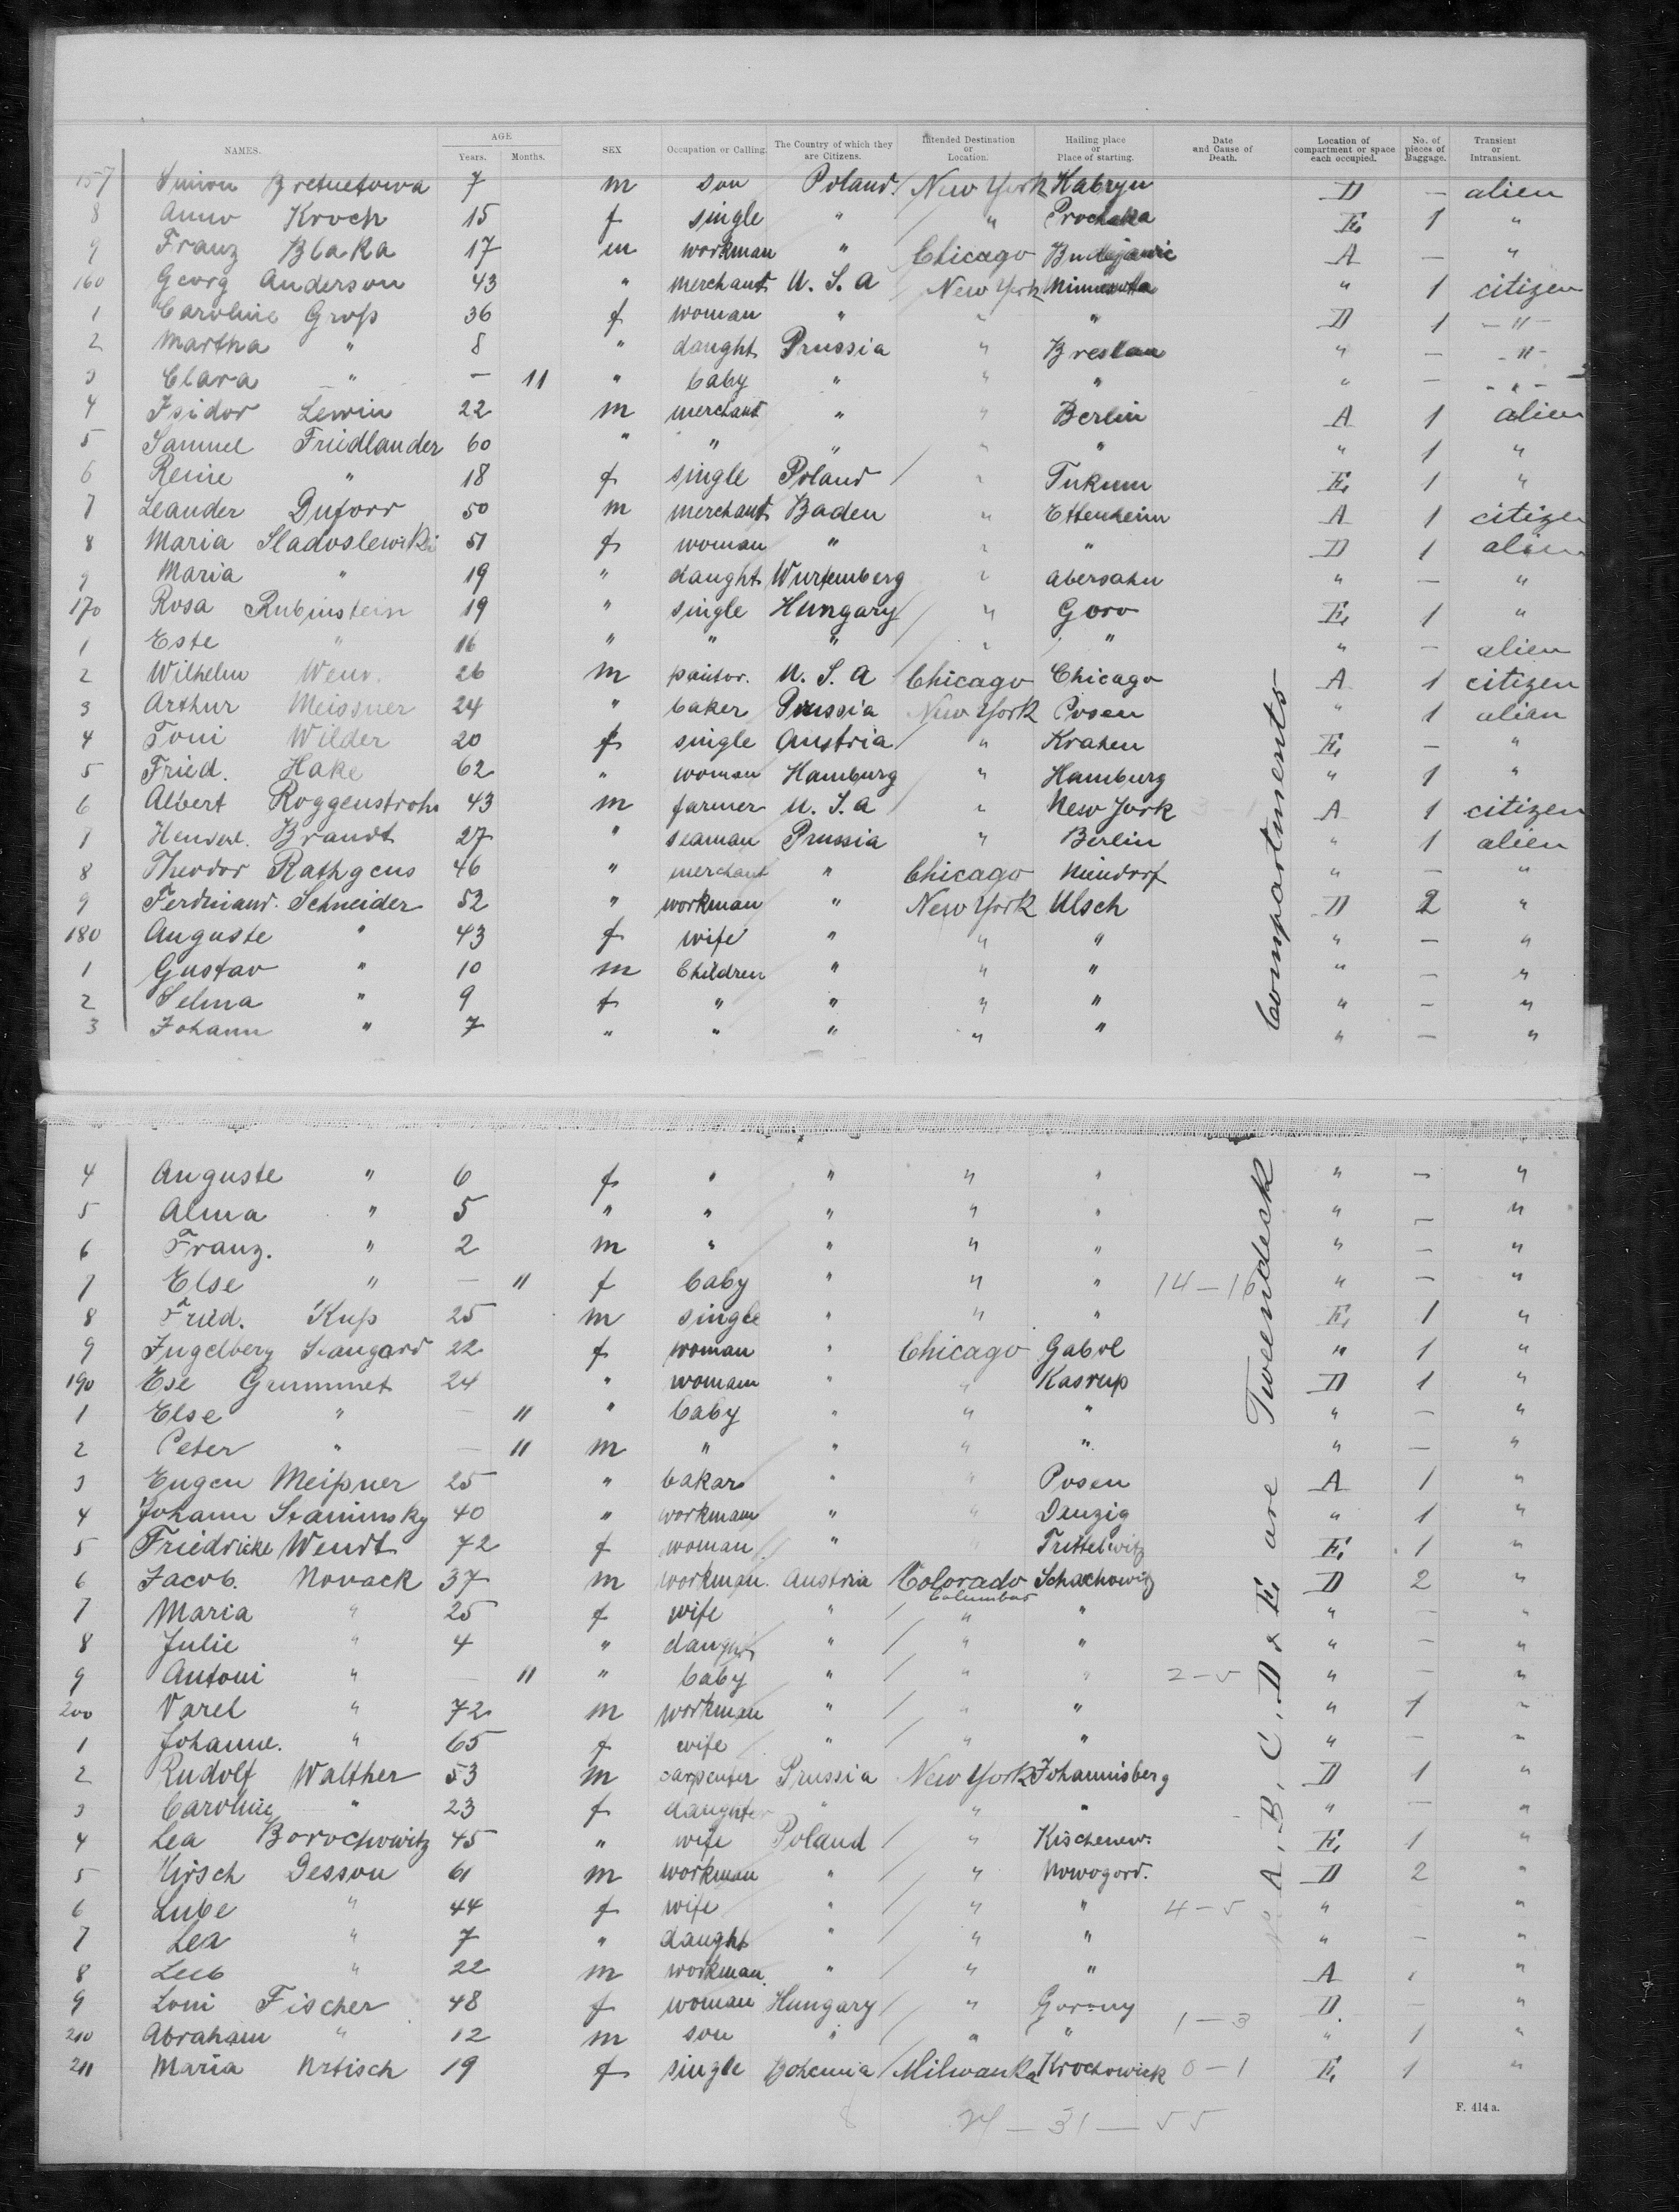 NAMES. AGE Years. Months. SEX Occupation or Calling. The Country of which they are Citizens. Intended Destination or Location. Hailing place or Place of starting. Date and Cause of Death. Location of compartment or space each occupied. No. of pieces of Baggage. Transient or Intransient.
157 7 m son Poland New York Kabryn D — alien
8 Anno Kroch 15 f single " " E 1 "
9 Franz Blaka 17 m workman " Chicago A — "
160 Georg Anderson 43 " merchant U. S. A New York Minnesotta " 1 citizen
1 Caroline Groß 36 f woman " " " D 1 — " —
2 Martha " 8 " daught Prussia " Breslau " — - " -
3 Clara " — 11 " baby " " " " — - " -
4 Isidor Lewin 22 m merchant " " Berlin A 1 alien
5 Samuel Friedlander 60 " " " " " " 1 "
6 Reine " 18 f single Poland " Tukum E 1 "
7 Leander Duforr 50 m merchant Baden " Ettenheim A 1 citizen
8 Maria Sladoslewski 51 f woman " " " D 1 alien
9 Maria " 19 " daught Wurtemberg " Abersahn " — "
170 Rosa Rubinstein 19 " single Hungary " Goro E 1 "
1 Este " 16 " " " " " " — alien
2 Wilhelm 26 m paintor. U. S. A Chicago Chicago A 1 citizen
3 Arthur Meissner 24 " baker Prussia New York Posen " 1 alian
4 Toni Wilder 20 f single Austria " Kraken E — "
5 Fried. Hake 62 " woman Hamburg " Hamburg " 1 "
6 Albert Roggenstrohn 43 m farmer U. S. a " New York A 1 citizen
7 Brandt 27 " seaman Prussia " Berlin " 1 alien
8 Theodor Rathgens 46 " merchant " Chicago " — "
9 Ferdinand. Schneider 52 " workman " New York Ulsch D 2 "
180 Auguste " 43 f wife " " " " — "
1 Gustav " 10 m Children " " " " — "
2 Selma " 9 f " " " " " — "
3 Johann " 7 " " " " " " — "
4 Auguste " 6 f " " " " " — "
5 Alma " 5 " " " " " " — "
6 Franz. " 2 m " " " " " — "
7 Else " — 11 f baby " " " 14 — 16 " — "
8 Fried. Kuß 25 m single " " " E 1 "
9 Ingelberg 22 f woman " Chicago Gabol " 1 "
190 Ese Grummet 24 " womam " " Kasrup D 1 "
1 Else " — 11 " baby " " " " — "
2 Peter " — 11 m " " " " " — "
3 Eugen Meißner 25 " bakar " " Posen A 1 "
4 Johann Staninsky 40 " workmam " " Denzig " 1 "
5 Friedricke Wendt 72 f woman " " Trittelwitz E 1 "
6 Jacob. Novack 37 m workman. Austria Colorado Columbus Schachowitz D 2 "
7 Maria " 25 f wife " " " " — "
8 Julie " 4 " daught " " " " — "
9 Antoni " — 11 " baby " " " 2 — 5 " — "
200 Varel " 72 m workman " " " " 1 "
1 Johanne. " 65 f wife " " " " — "
2 Rudolf Walther 53 m carpenter Prussia New York Johannisberg D 1 "
3 Caroline " 23 f daughter " " " " — "
4 Lea Borochowitz 45 " wife Poland " Kischenew. E 1 "
5 Hirsch Desson 61 m workman " " Nowogord. D 2 "
6 Lube " 44 f wife " " " 4 — 5 " — "
7 Lea " 7 " daught " " " " — "
8 Leib " 22 m workman. " " " A "
9 Loni Fischer 48 f woman Hungary " Gorony D. — "
210 Abraham " 12 m son " " " 1 — 3 " 1 "
211 Maria Nrtisch 19 f single Bohemia Milwauka Krochowick 0 — 1 E 1 "
A, B, C, D & E are Tweendeck Compartments
24 — 31 — 55
F. 414 a.